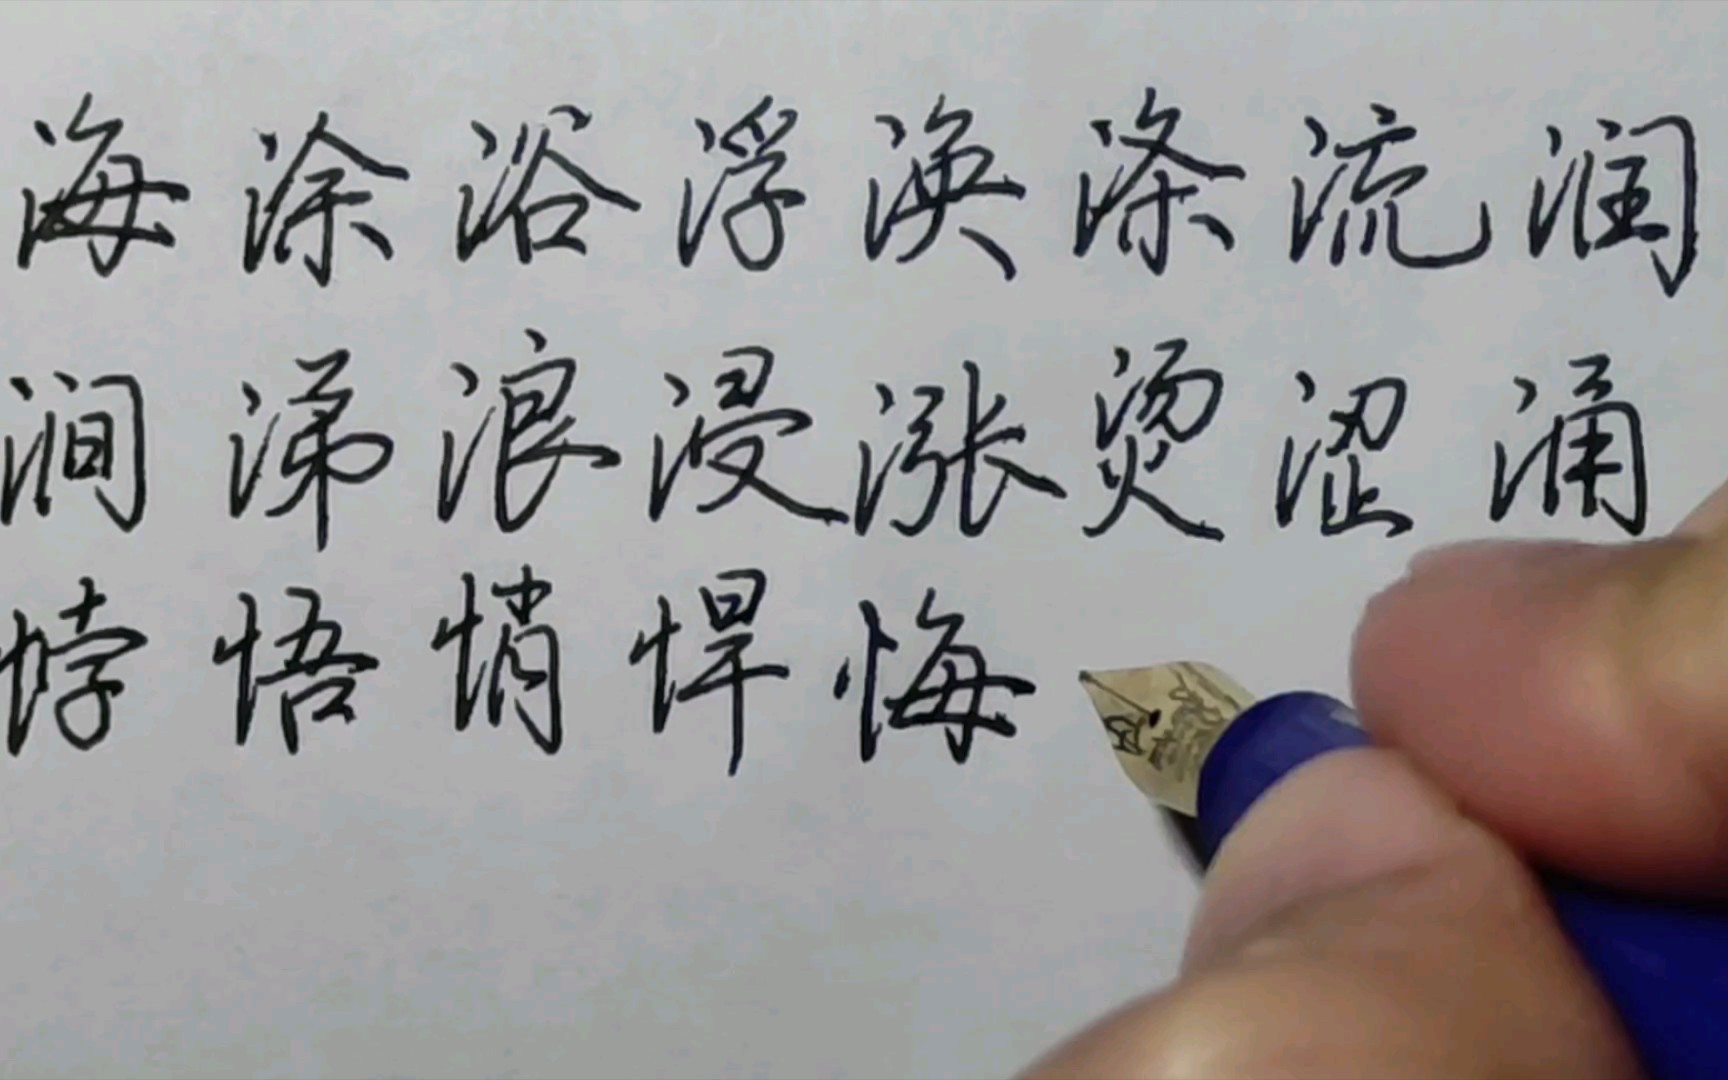 海涂浴浮涣涤流润
涧涕浪浸涨烫涩涌
悖悟悄悍悔